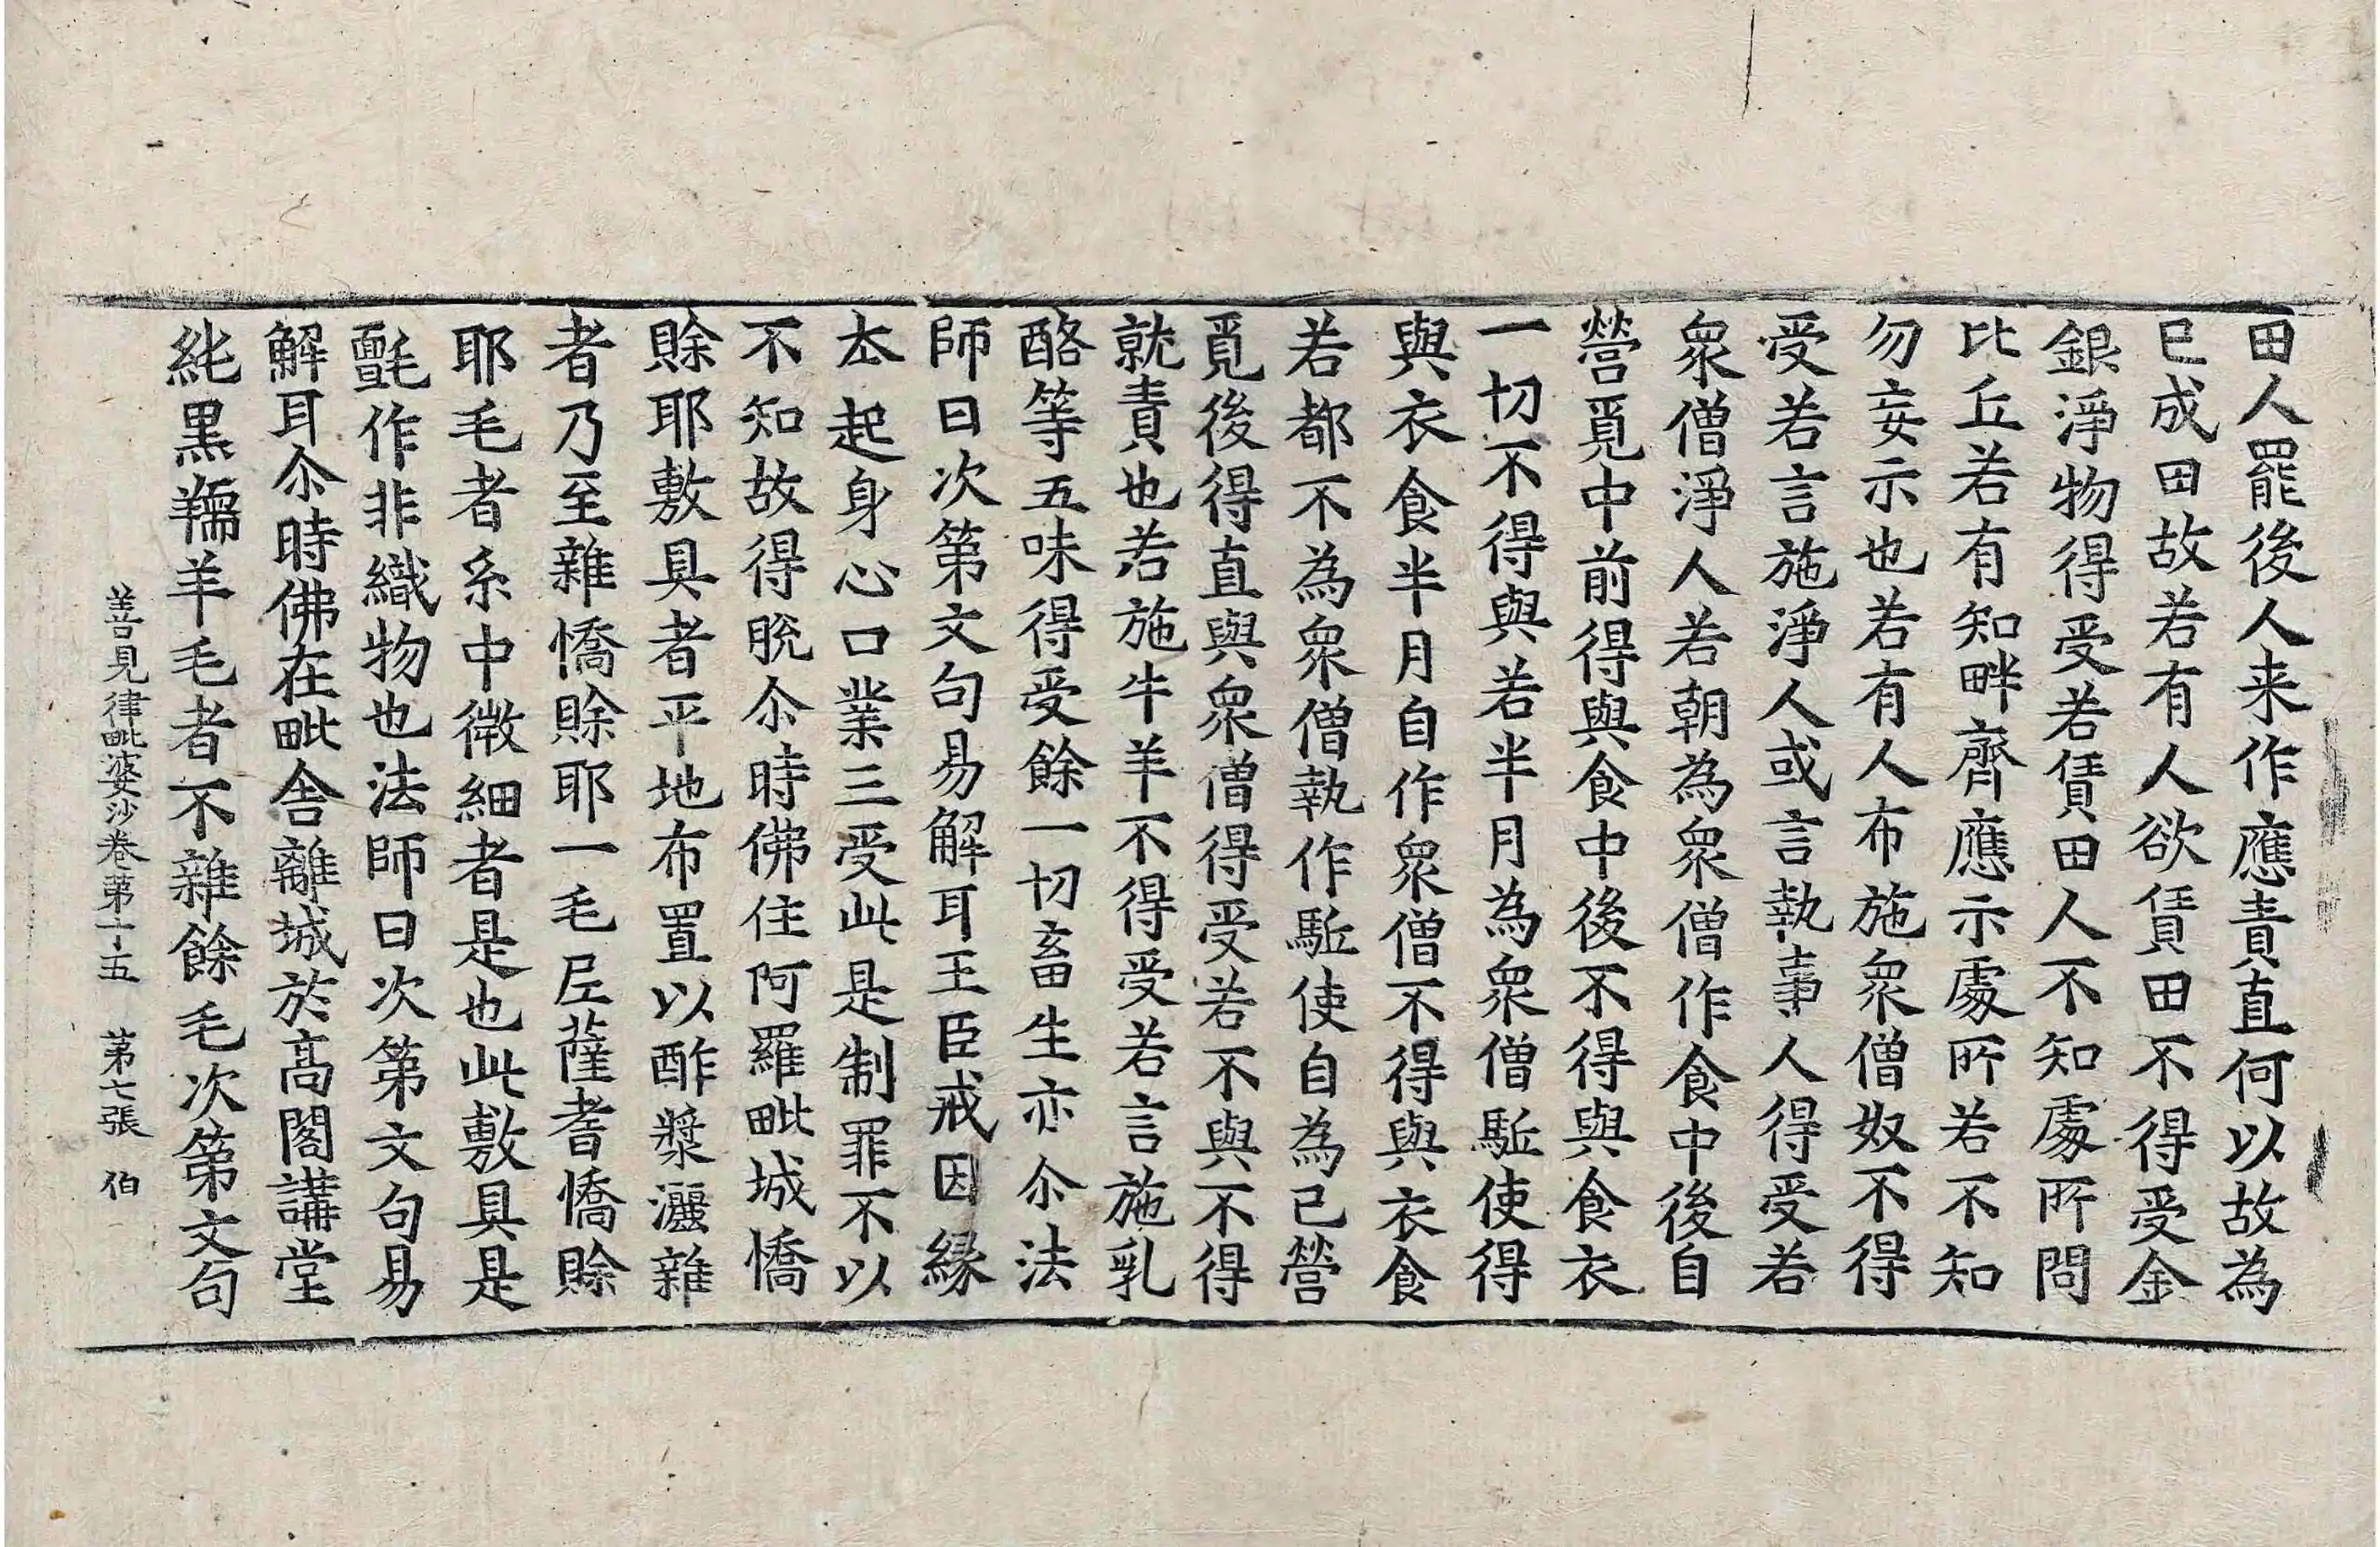 田人罷後人来作應責直何以故為
已成田故若有人欲賃田不得受金
銀淨物得受若賃田人不知處所問
比丘若有知畔齊應示處所若不知
勿妄示也若有人布施衆僧奴不得
受若言施淨人或言執事人得受若
衆僧淨人若朝為衆僧作食中後自
營覓中前得與食中後不得與食衣
一切不得與若半月為衆僧駈使得
與衣食半月自作衆僧不得與衣食
若都不為衆僧執作駈使自為已營
覓後得直與衆僧得受若不與不得
就責也若施牛羊不得受若言施乳
酪等五味得受餘一切畜生亦尒法
師曰次第文句易解耳王臣戒因緣
夲起身心口業三受此是制罪不以
不知故得脫尒時佛住阿羅毗城憍
賒耶敷具者平地布置以酢漿灑雜
者乃至雜憍賒耶一毛尼薩耆憍賒
耶毛者糸中微細者是也此敷具是
氈作非織物也法師曰次第文句易
解耳尒時佛在毗舍離城於高閣講堂
純黑羺羊毛者不雜餘毛次第文句
善見律毗婆沙卷第十五 第七張 伯